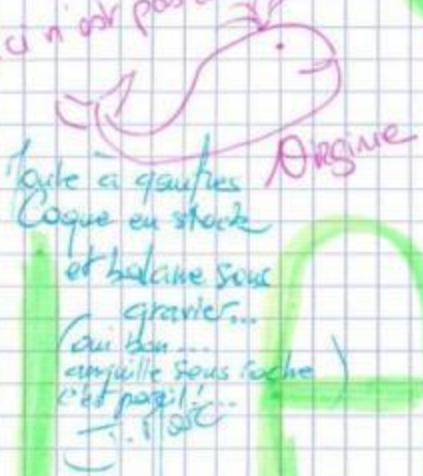 ci n'est pas
Virginie
Moule à gaufres
Coque en stock
et balane sous
gravier...
(oui bon...
anguille sous roche
c'est pareil !...)